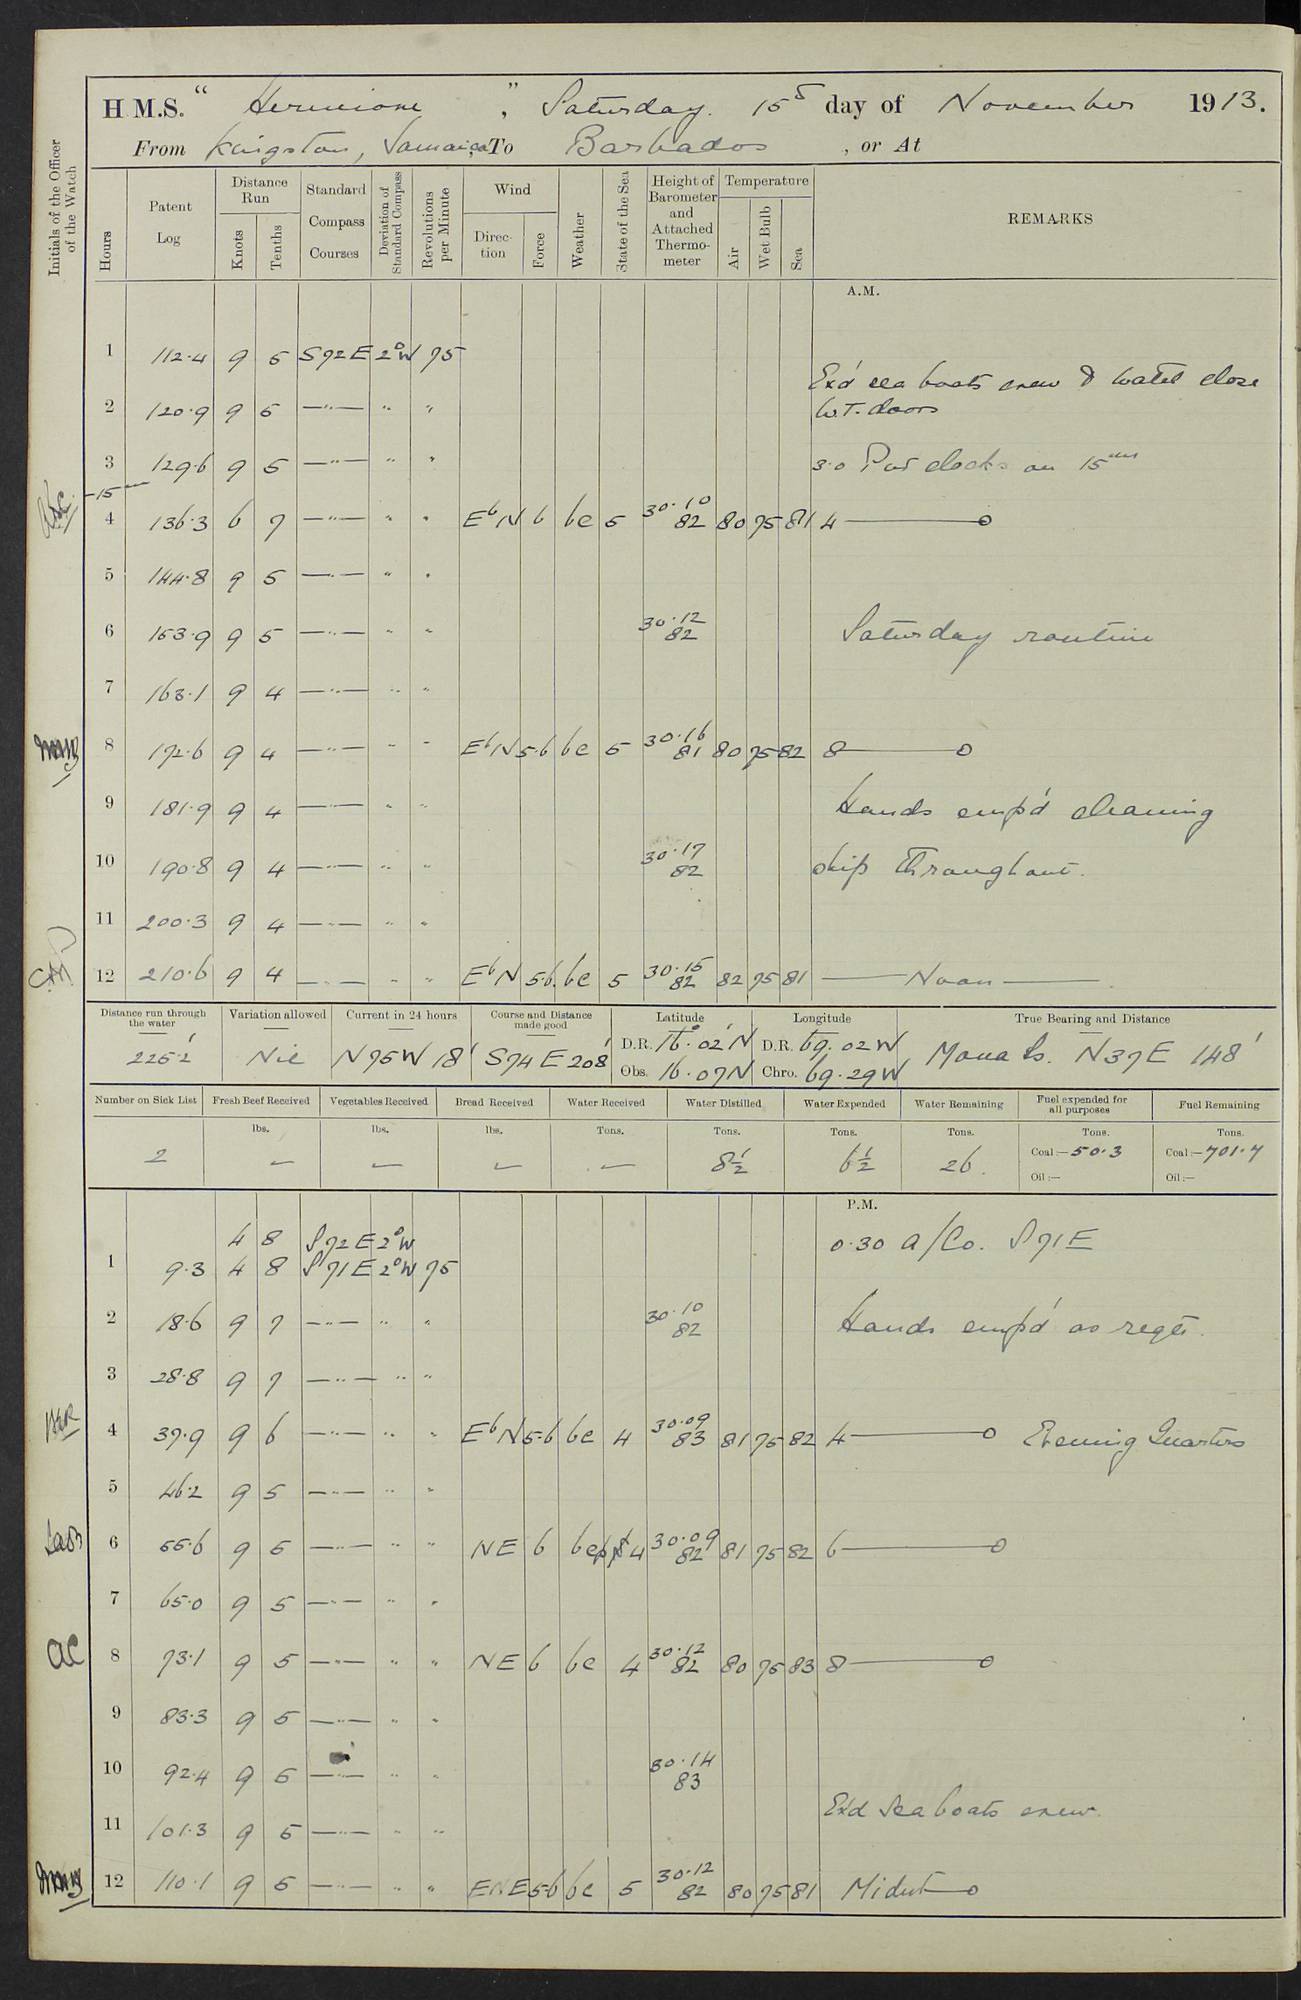 H.M.S. " Hermione ", Saturday. 15th day of November 1913.
From Kingston, Jamaica, To Barbados , or At
Initials of the Officer of the Watch
Hours
Patent Log
Distance Run
Knots
Tenths
Standard Compass Courses
Deviation of Standard Compass
Revolutions per Minute
Wind
Direction
Force
Weather
State of the Sea
Height of Barometer and Attached Thermometer
Temperature
Air
Wet Bulb
Sea
REMARKS
A.M.
1 112.4 9 5 S72E 2°W 75
Exd sea boats crew & watch close
2 120.9 9 5 —"— " " W.T. doors
3 129.6 9 5 —"— " " 3.0 Put clocks on 15 mins
-15 —
4 136.3 6 7 —"— " " EbN 6 bc 5 30.10 82 80 75 81 4 ———o
5 144.8 9 5 —"— " "
6 153.9 9 5 —"— " " 30.12 82 Saturday routine
7 163.1 9 4 —"— " "
8 172.6 9 4 —"— " " EbN 5.6 bc 5 30.16 81 80 75 82 8 ———o
9 181.9 9 4 —"— " " Hands emp'd cleaning
10 190.8 9 4 —"— " " 30.17 82 ship throughout.
11 200.3 9 4 —"— " "
12 210.6 9 4 —"— " " EbN 5.6. bc 5 30.15 82 82 75 81 ——— Noon ———.
Distance run through the water
Variation allowed
Current in 24 hours
Course and Distance made good
Latitude
Longitude
True Bearing and Distance
225.2' Nil N75W 18' S74E 208' D.R. 16°.02'N D.R. 69.02W Mona Is. N37E 148'
Obs. 16.07N Chro. 69.29W
Number on Sick List Fresh Beef Received Vegetables Received Bread Received Water Received Water Distilled Water Expended Water Remaining Fuel expended for all purposes Fuel Remaining
lbs. lbs. lbs. Tons. Tons. Tons. Tons. Tons. Tons.
2 — — — — 8½ 6½ 26. Coal:— 50.3 Coal:— 701.7
Oil:— Oil:—
P.M.
4 8 S72E 2°W 0.30 A/Co. S71E
1 9.3 4 8 S71E 2°W 75
2 18.6 9 7 —"— " " 30.10 82 Hands emp'd as reqte.
3 28.8 9 7 —"— " "
4 37.9 9 6 —"— " " EbN 5.6 bc 4 30.09 83 81 75 82 4 ———o Evening Quarters
5 46.2 9 5 —"— " "
6 55.6 9 5 —"— " " NE 6 bcp 4 30.09 82 81 75 82 6 ———o
7 65.0 9 5 —"— " "
AC
8 73.1 9 5 —"— " " NE 6 bc 4 30.12 82 80 75 83 8 ———o
9 83.3 9 5 —"— " "
10 92.4 9 5 —"— " " 30.14 83
Exd sea boats crew.
11 101.3 9 5 —"— " "
12 110.1 9 5 —"— " " ENE 5.6 bc 5 30.12 82 80 75 81 Midnt—o